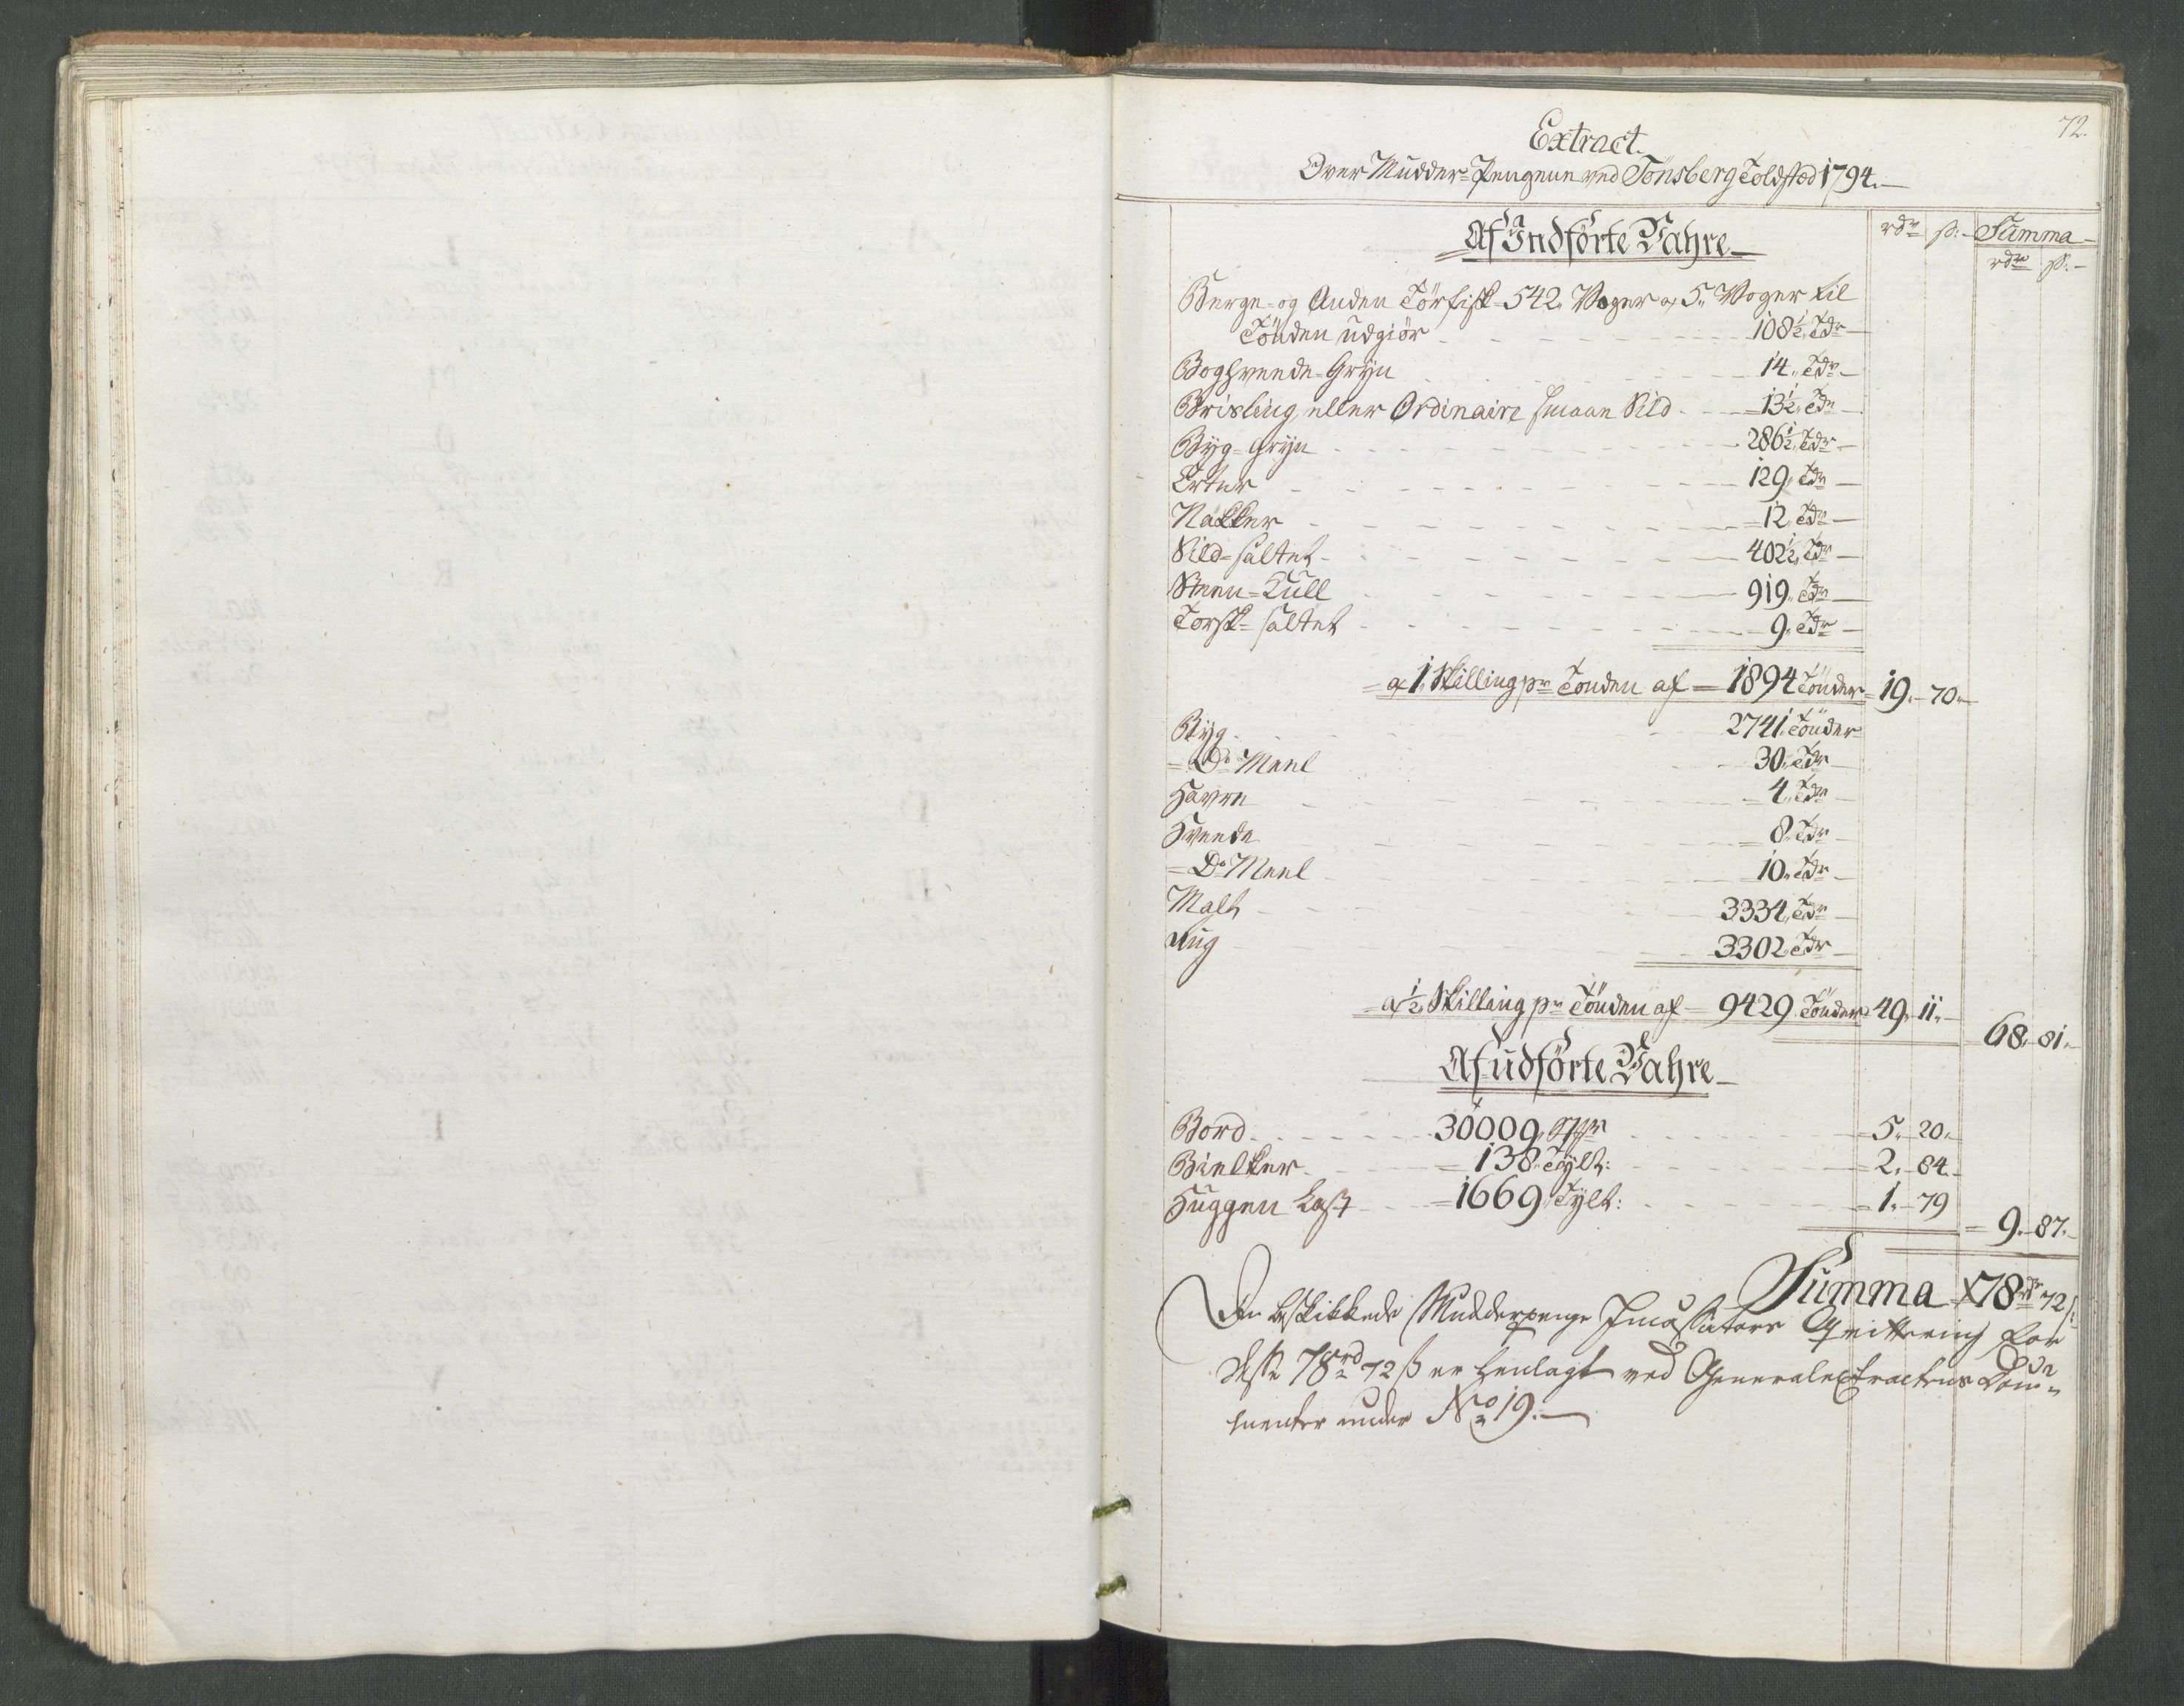 72.
Extract.
Over Mudder-Pengene ved Tönsberg Toldsted 1794.
Af Indförte Vahre
rdr ß. Summa
rdr ß.
Berge- og Anden Törfisk 542 Voger a 5 Voger til
Tönden udgiör 108½ Tdr
Boghvede-Gryn 14 Tdr
Brisling eller Ordinaire smaae Sild 13½ Tdr
Byg-Gryn 286½ Tdr
Erter 129 Tdr
Nakker 12 Tdr
Sild-saltet 402½ Tdr
Steen-Kull 919 Tdr
Torsk-saltet 9 Tdr
a 1 Skilling pr Tönden af 1894 Tönder 19 70
Byg 2741 Tönder
Do Meel 30 Tdr
Havre 4 Tdr
Hvede 8 Tdr
Do Meel 10 Tdr
Malt 3334 Tdr
Rug 3302 Tdr
a ½ Skilling pr Tönden af 9429 Tönder 49 11
68 81
Af udförte Vahre
Bord 30009 5 20
Bielker 138 Tylt: 2 84
Huggen Last 1669 Tylt: 1 79
9 87
Summa 78 rdr 72 ß
Den beskikkede Mudderpenge Incassators Qvittering for
disse 78 rd 72 ß er henlagt ved Generalextractens Docu-
menter under No 19.